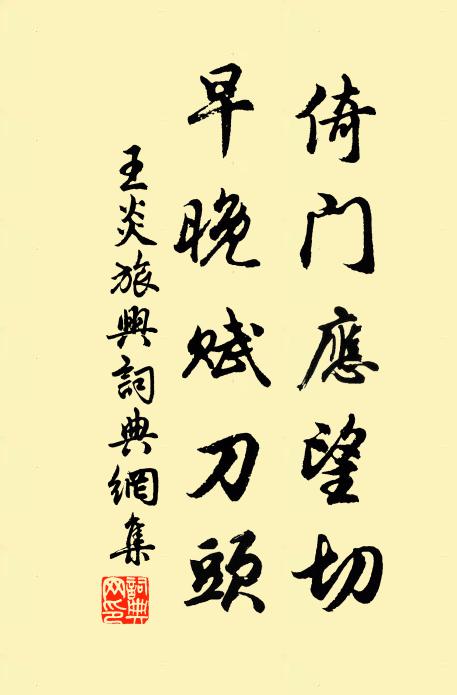 倚门應望切
早晚赋刀頭
王炎旅興詞典網集
詞典网印